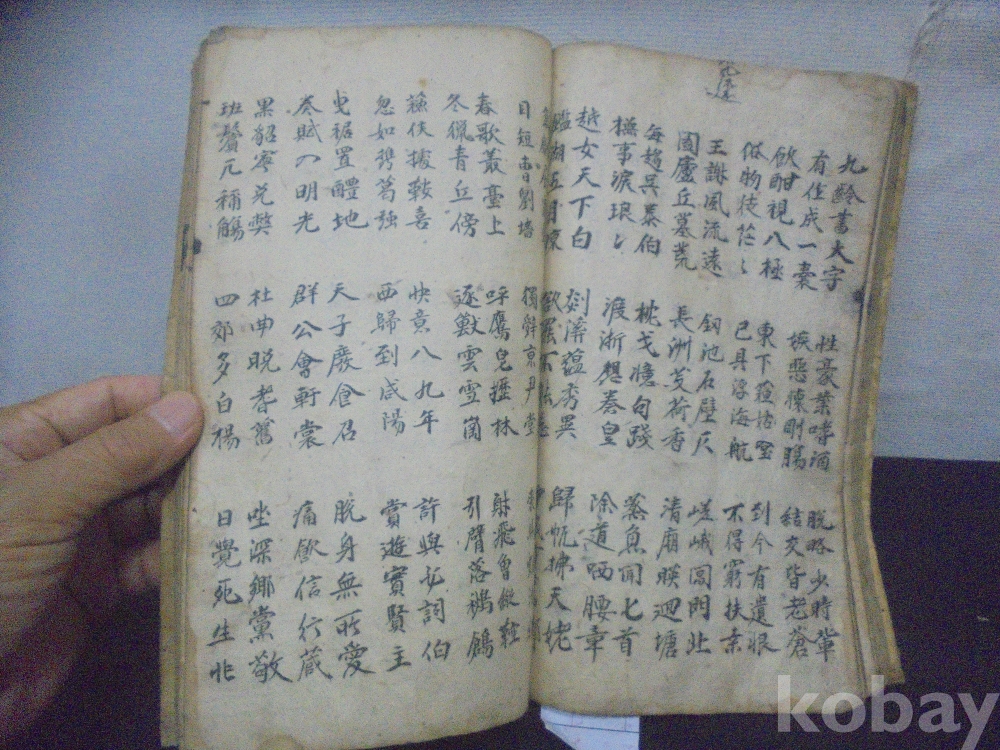 九齡書大字 性豪業嗜酒 脫略少時輩
有作成一囊 嫉惡懷剛腸 結交皆老蒼
飲酣視八極 東下蘇姑 到今有遺恨
俗物 茫〻 已具浮海航 不得窮扶桒
王謝風流遠 釼池石壁仄 嵯峨閶門北
國廬丘墓荒 長洲芰荷香 清廟暎迴塘
每趨吳泰伯 枕戈憶句踐 蒸魚聞七首
撫事淚琅〻 渡浙想秦皇 除道哂腰章
越女天下白 剡溪蘊秀異 歸帆拂天姥
五月凉 欲罷不
目短曺劉墻 獨辭京尹堂
春歌叢臺上 呼鷹皂櫪林 射飛曾縱鞚
冬獵青丘傍 逐獸雲雪崗 引臂落鶖鶬
蘓侯據鞍喜 快意八九年 許與必詞伯
忽如携葛強 西歸到咸陽 賞遊實賢主
曳裾置醴地 天子廢食召 脫身無所愛
奏賦入明光 群公會軒裳 痛飲信行藏
黑貂寧免弊 杜曲晚耆舊 坐深鄉黨敬
班鬢兀稱觴 四郊多白楊 日覺死生忙
kobay